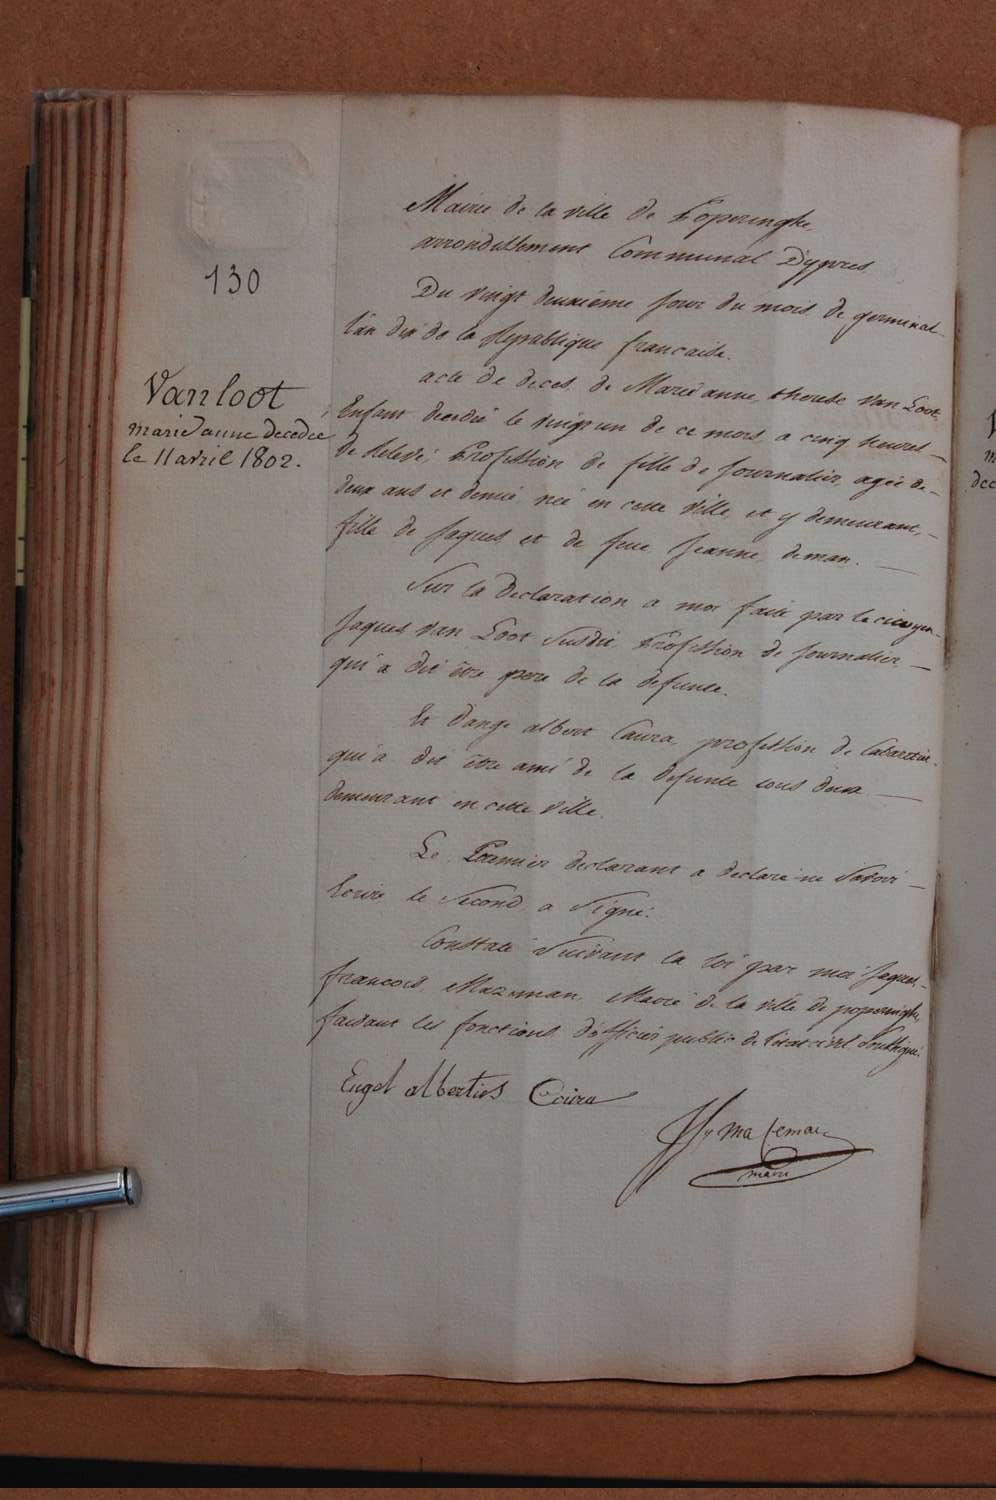 130
Vanloot
marie anne decedée
le 11 avril 1802.
Mairie de la ville de Poperinghe,
arrondissement Communal D'ypres
Du vingt deuxième jour du mois de germinal
l'an dix de la Republique francaise.
acte de deces de Marie anne therese Van Loot
Enfant decedée le vingt un de ce mois a cinq heures
de relevé, Profession de fille de Journalier, agée de
deux ans et demie, née en cette ville, et y demeurant,
fille de Jaques et de feue Jeanne deman.
Sur la declaration a moi faite par le citoyen
Jaques Van Loot susdit, Profession de Journalier
qui a dit être pere de la defunte.
Et d'ange albert Caura, profession de Cabaretier
qui a dit être ami de la defunte tous deux
demeurant en cette ville.
Le Premier declarant a declaré ne savoir
Ecrire le second a signé.
Constaté suivant la loi par moi Jaques
francois Mazeman Maire de la ville de poperinghe,
faisant les fonctions d'officier public de l'etat civil soussigné.
Engel albertus Caura
maire